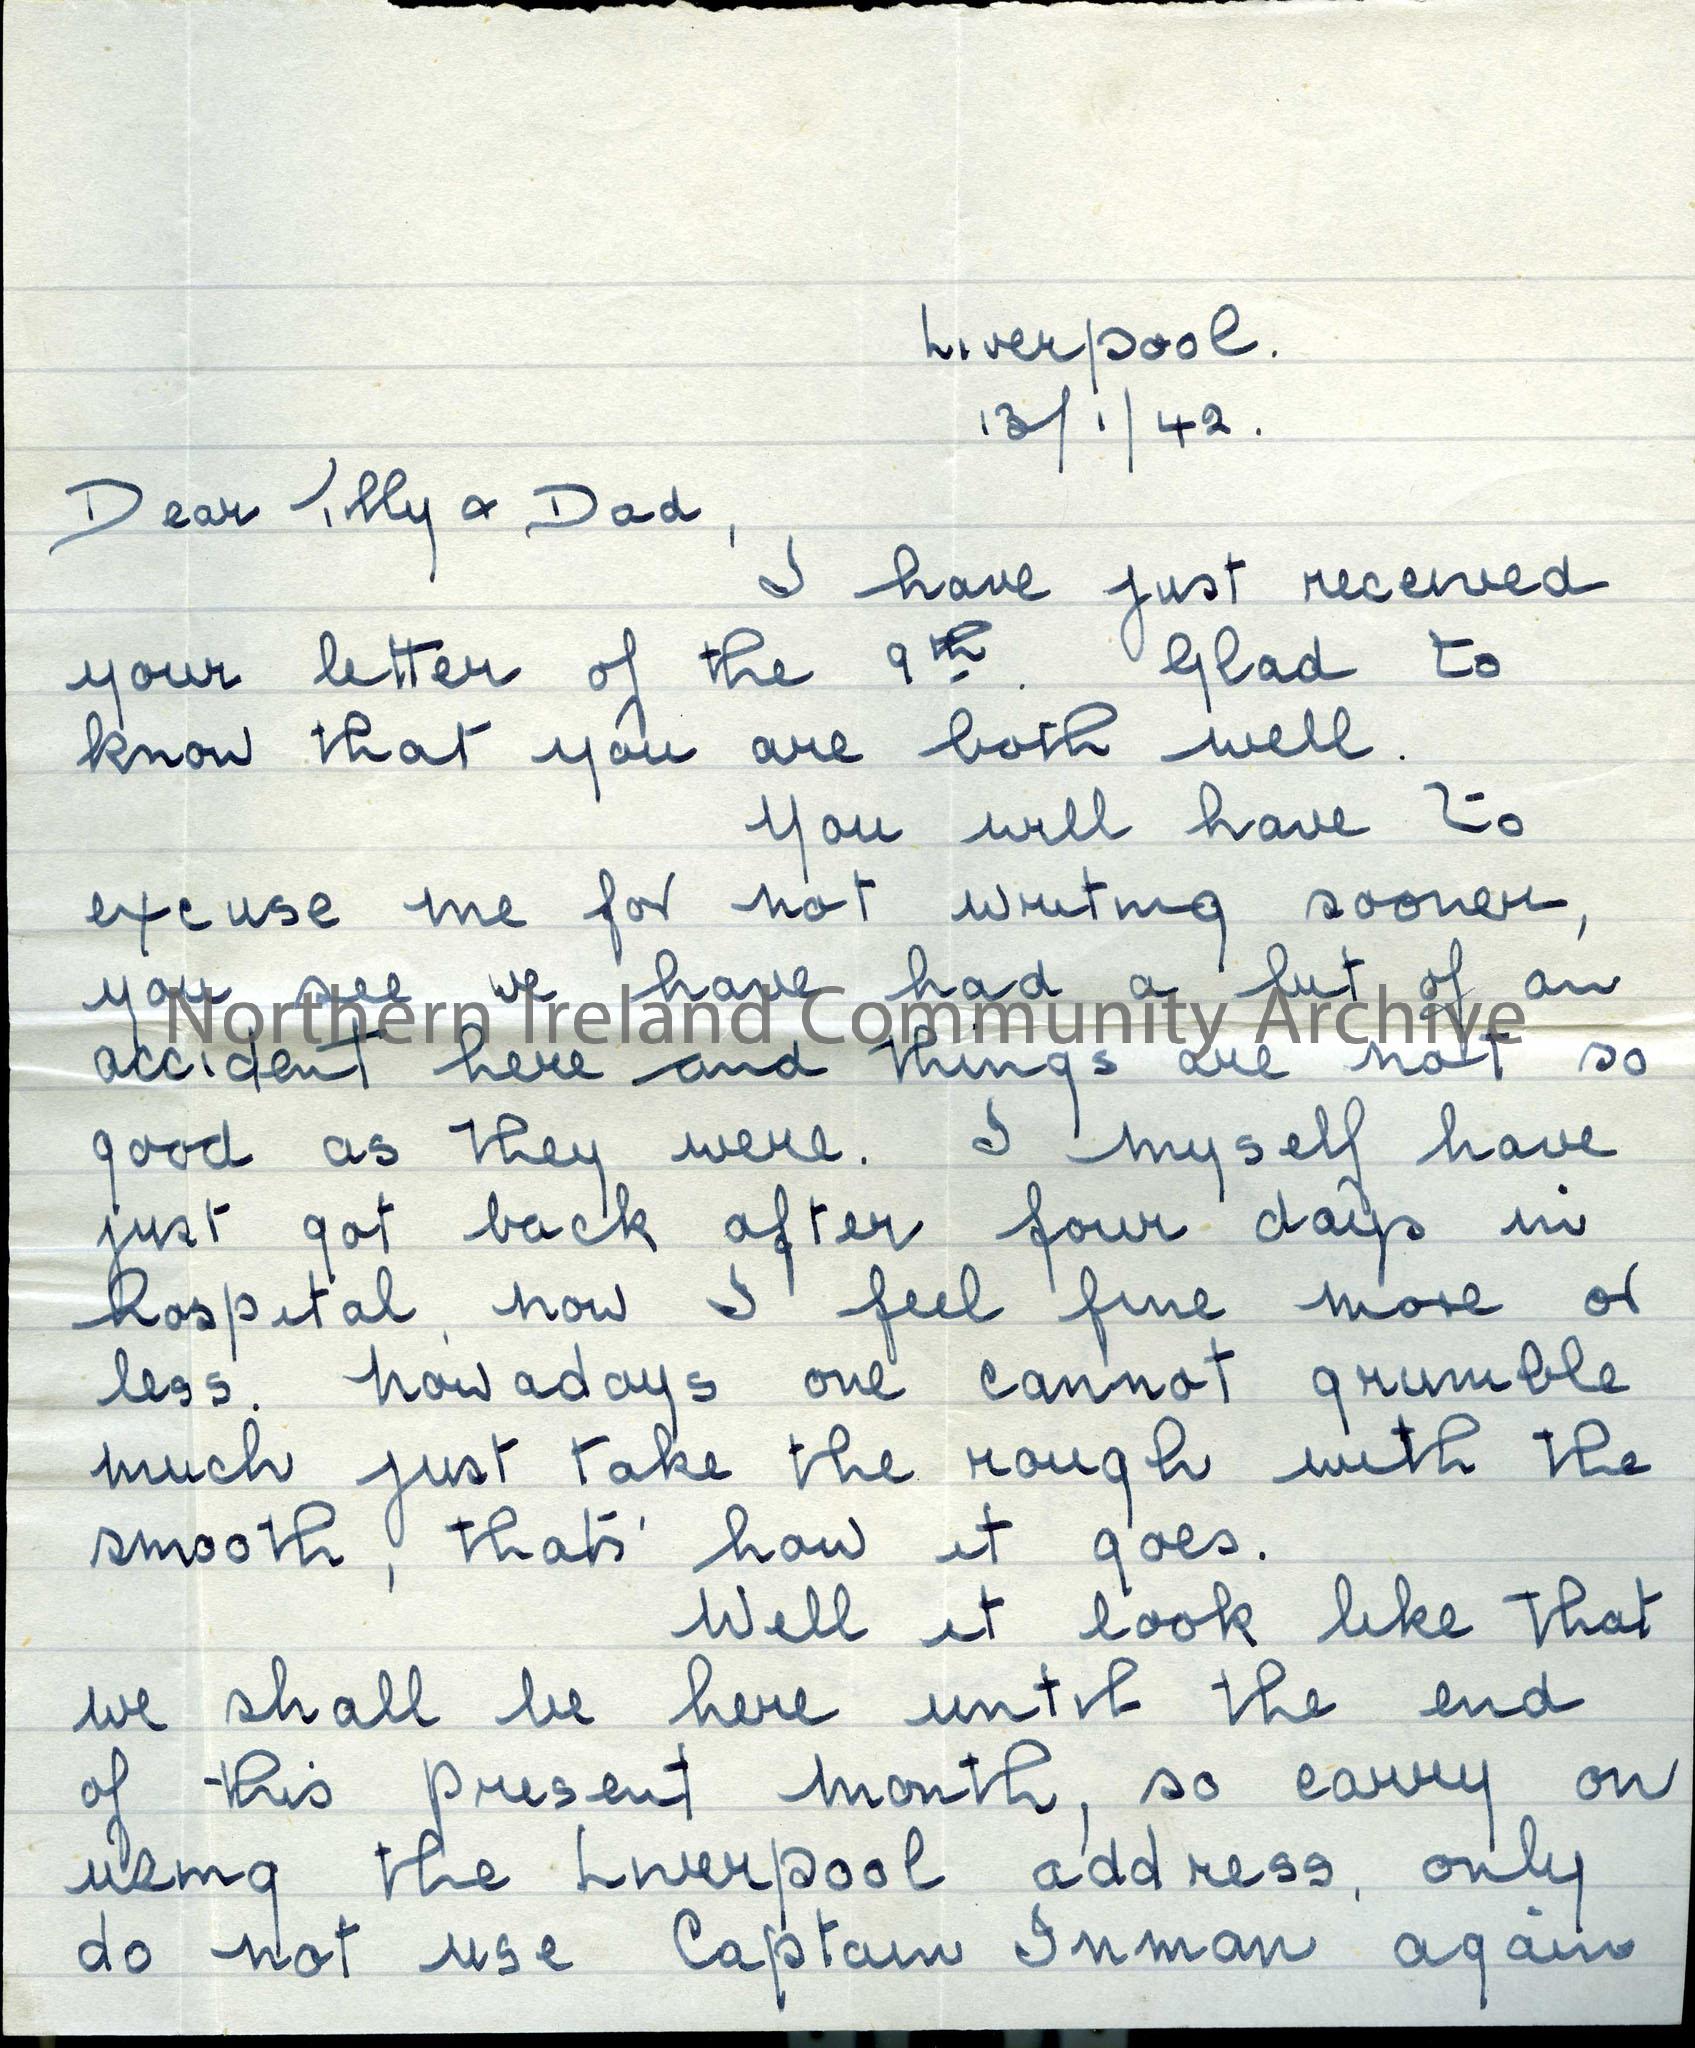 Liverpool.
13/1/42.
Dear Tilly & Dad,
I have just received
your letter of the 9th. Glad to
know that you are both well.
You will have to
excuse me for not writing sooner,
you see we have had a bit of an
Northern Ireland Community Archive
accident here and things are not so
good as they were. I myself have
just got back after four days in
hospital, now I feel fine more or
less. nowadays one cannot grumble
much just take the rough with the
smooth, thats' how it goes.
Well it look like that
we shall be here until the end
of this present month, so carry on
using the Liverpool address, only
do not use Captain Inman again